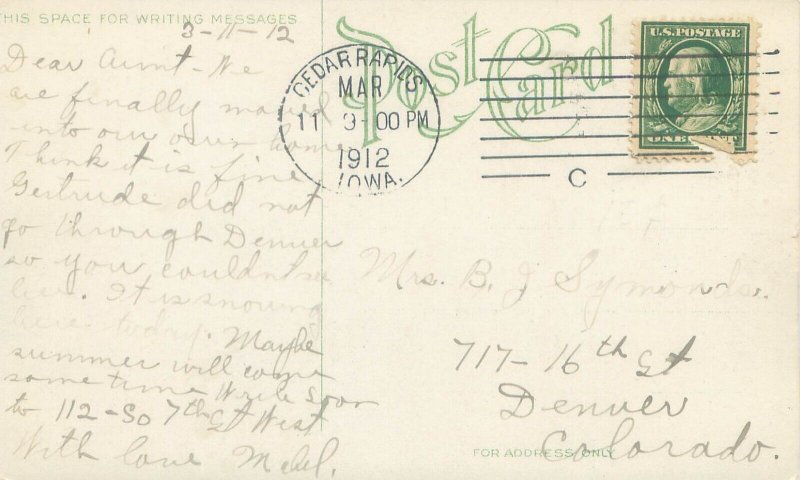 THIS SPACE FOR WRITING MESSAGES
3-11-12
Dear Aunt - We
are finally moved
into our own home
Think it is fine
Gertrude did not
go through Denver
so you couldnt see
her. It is snowing
here today. Maybe
summer will come
some time Write soon
to 112 - So 7th St West
With love Mabel.
Post Card
CEDAR RAPIDS
MAR
11 9-00 PM
1912
IOWA.
C
U.S. POSTAGE
ONE CENT
Mrs. B. J Symonds.
717 - 16th St
Denver
Colorado.
FOR ADDRESS ONLY